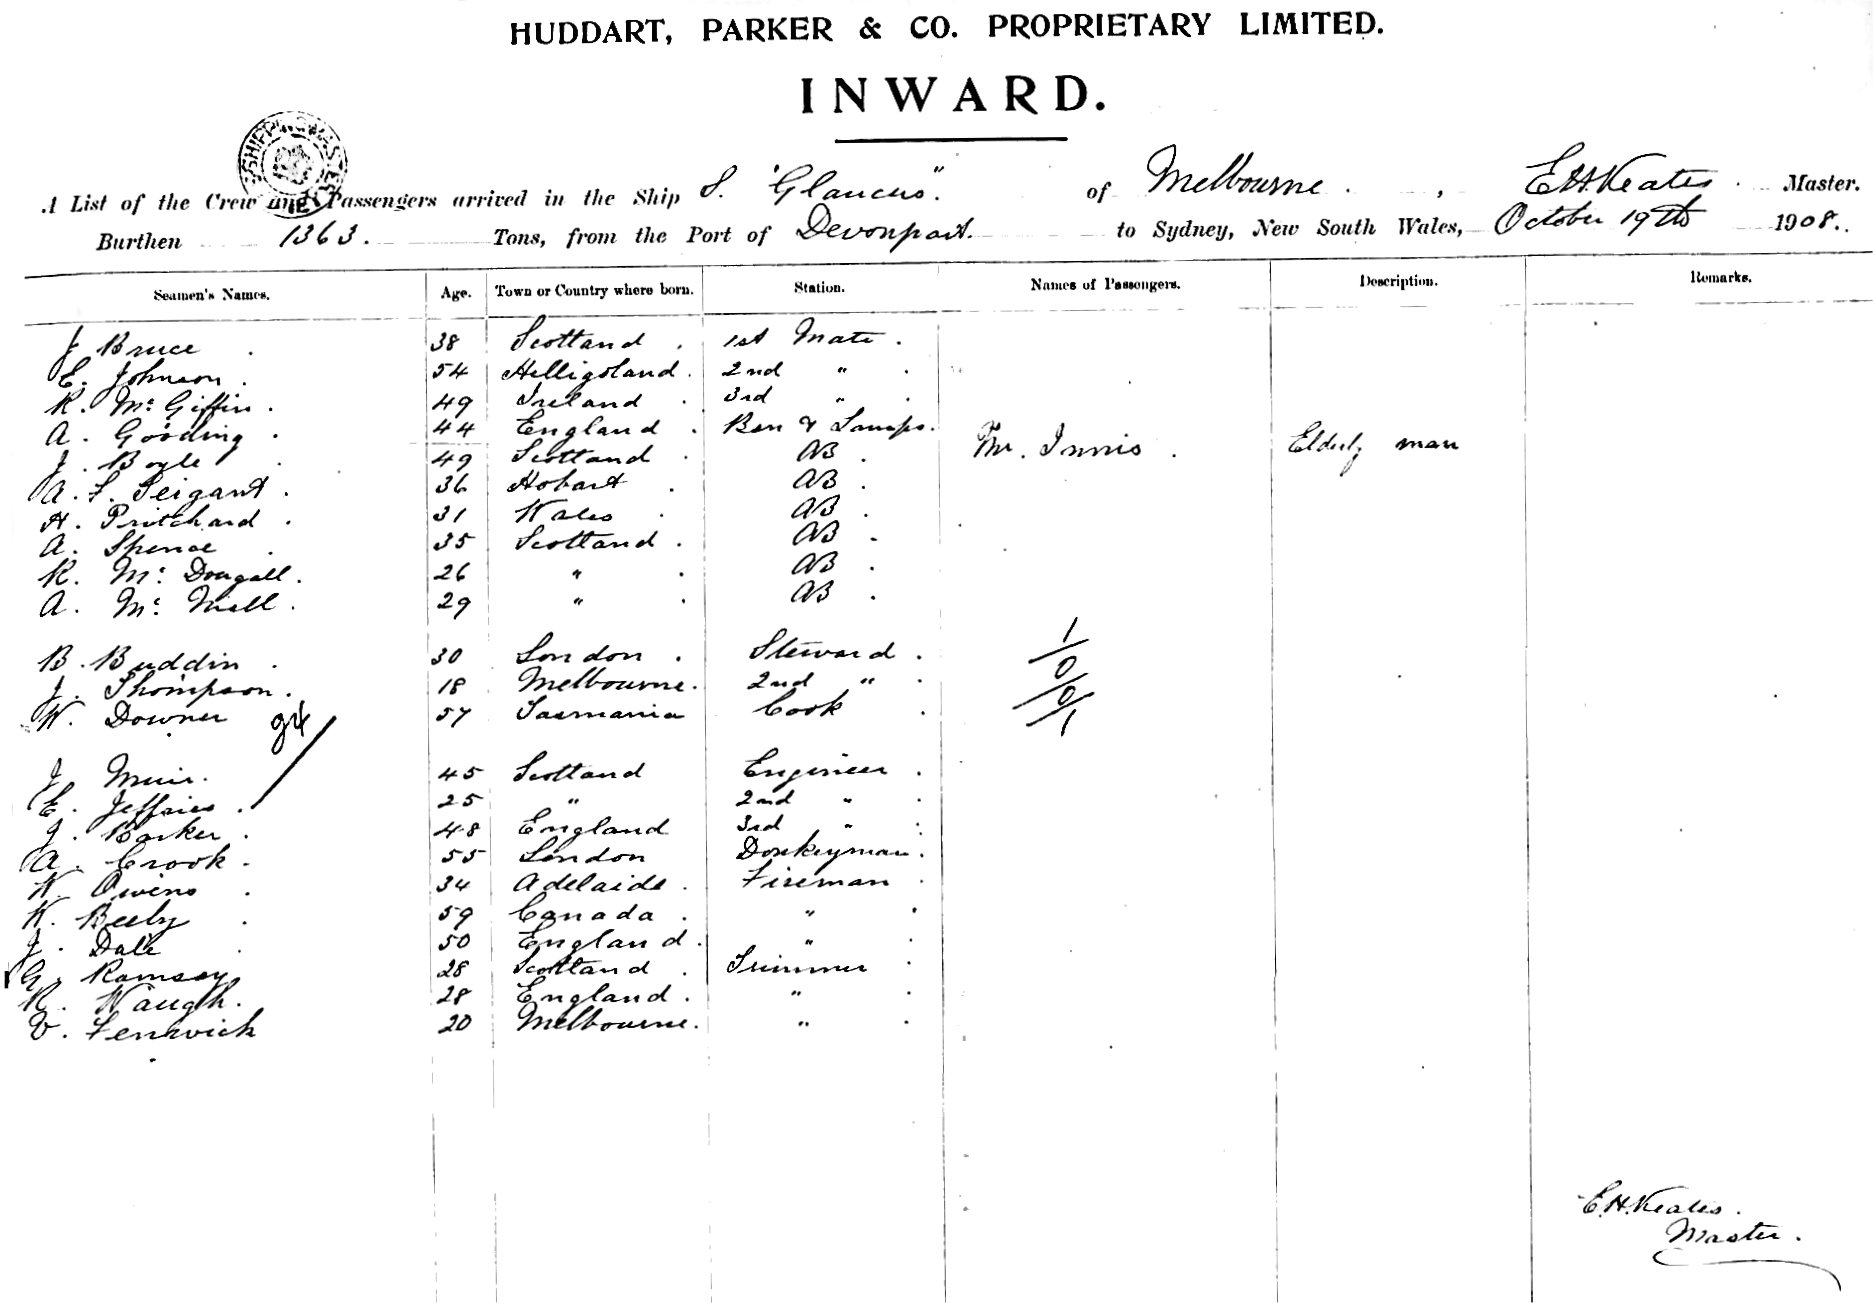 HUDDART, PARKER & CO. PROPRIETARY LIMITED.
INWARD.
A List of the Crew and Passengers arrived in the Ship S. "Glaucus" of Melbourne, E.H. Keates Master.
Burthen 1363. Tons, from the Port of Devonport. to Sydney, New South Wales, October 19th 1908.
Seamen's Names. Age. Town or Country where born. Station. Names of Passengers. Description. Remarks.
J Bruce 38 Scotland 1st Mate
E. Johnson 54 Helligoland 2nd "
R. Mc Giffin 49 Ireland 3rd "
A. Gooding 44 England Bsn & Lamps.
J. Boyle 49 Scotland AB Mr. Innis Elderly man
A. F. Seigant 36 Hobart AB
H. Pritchard 31 Wales AB
A. Spence 35 Scotland AB
R. Mc Dougall 26 " AB
A. Mc Niell 29 " AB
B. Buddin 30 London Steward
J. Thompson 18 Melbourne 2nd "
W. Downer 57 Tasmania Cook
24
1/0/0/1
J Muir 45 Scotland Engineer
E. Jeffries 25 " 2nd "
J. Barker 48 England 3rd "
A. Crook 55 London Donkeyman
W. Owens 34 Adelaide Fireman
W. Beeby 59 Canada "
J. Dale 50 England "
G. Ramsay 28 Scotland Trimmer
R. Waugh 28 England "
V. Fenwick 20 Melbourne "
E.H. Keates.
Master.